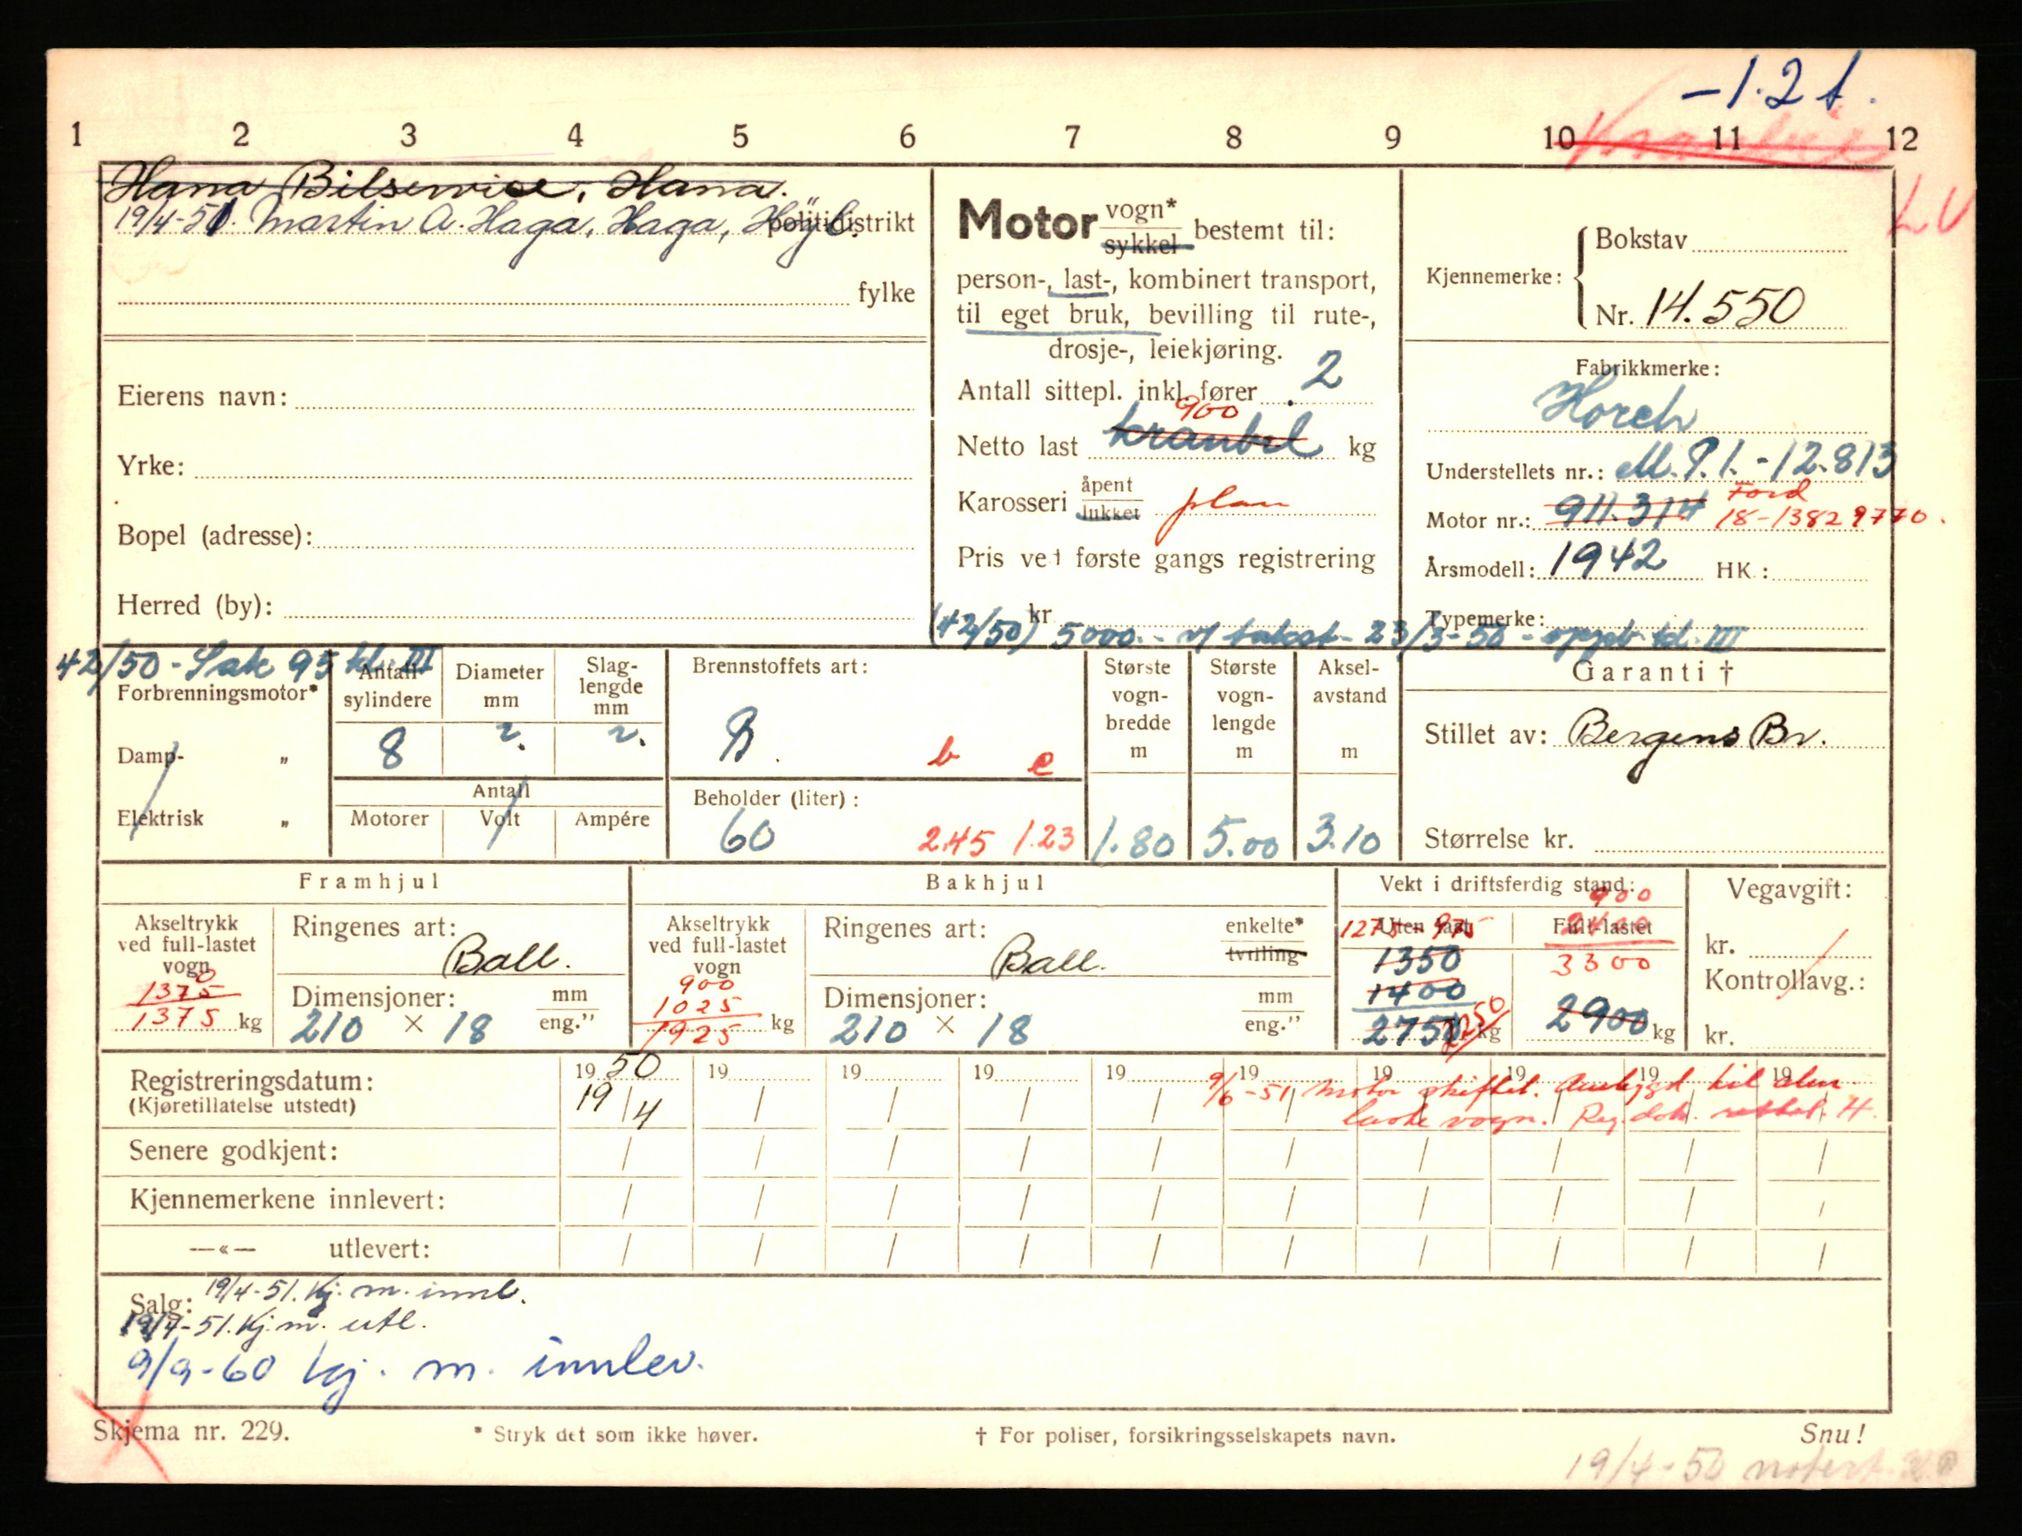 -1.2 t.
1 2 3 4 5 6 7 8 9 10 11 12
Kranbil
LV
Hana Bilservice, Hana.
19/4-51. Martin A. Haga, Haga, Höyl. politidistrikt
fylke
Eierens navn:
Yrke:
Bopel (adresse):
Herred (by):
Motor vogn* sykkel bestemt til:
person-, last-, kombinert transport,
til eget bruk, bevilling til rute-,
drosje-, leiekjøring.
Antall sittepl. inkl. fører 2
900
Netto last kranbil kg
Karosseri åpent lukket plan
Pris ved første gangs registrering
kr.
(42/50) 5000.- v/ takst - 23/3-50 - oppgb kl. III
Kjennemerke: Bokstav
Nr. 14.550
Fabrikkmerke:
Horch
Understellets nr.: M.P.1.-12.813
Ford
Motor nr.: 911.314 18-1382 9770.
Årsmodell: 1942 HK:
Typemerke:
42/50 - Sak 95 kl. III
Forbrenningsmotor*
Damp- „
Elektrisk „
Antall sylindere
8
Diameter mm
Slaglengde mm
Antall
Motorer Volt Ampére
Brennstoffets art:
B. b e
Beholder (liter):
60 2.45 1.23
Største vognbredde m
1.80
Største vognlengde m
5.00
Akselavstand m
3.10
Garanti †
Stillet av: Bergens Br.
Størrelse kr.
Framhjul
Akseltrykk ved full-lastet vogn
1375
1375 kg
Ringenes art:
Ball.
Dimensjoner: mm eng."
210 × 18
Bakhjul
Akseltrykk ved full-lastet vogn
900
1025
1925 kg
Ringenes art: enkelte* tvilling
Ball.
Dimensjoner: mm eng."
210 × 18
Vekt i driftsferdig stand:
Uten last:
1275 - 975
1350
1400
2750 2250 kg
Full-lastet
900
2400
3300
2900 kg
Vegavgift:
kr.
Kontrollavg.:
kr.
Registreringsdatum:
(Kjøretillatelse utstedt)
1950 19 19 19 19 19 19 19 19 19
19/4
9/6-51 Motor skiftet. Ombygd til alm
laste vogn. Reg. dok. rettet. H.
Senere godkjent:
Kjennemerkene innlevert:
—«— utlevert:
Salg: 19/4-51. Kj. m. innl.
19/4-51. Kj. m. utl.
9/9-60 kj. m. innlev.
Skjema nr. 229.
* Stryk det som ikke høver.
† For poliser, forsikringsselskapets navn.
Snu!
19/4-50 notert.